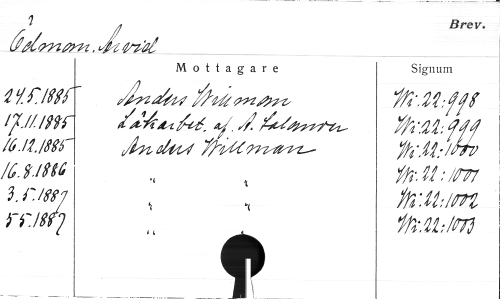 Brev.
Ödmann. Arvid
Mottagare Signum
24.5.1885 Anders Willman Wi.22:998
17.11.1885 Läkarbet. af A. Wi.22:999
16.12.1885 Anders Willman Wi.22:1000
16.8.1886 " " Wi.22:1001
3.5.1887 " " Wi.22:1002
5.5.1887 " " Wi.22:1003